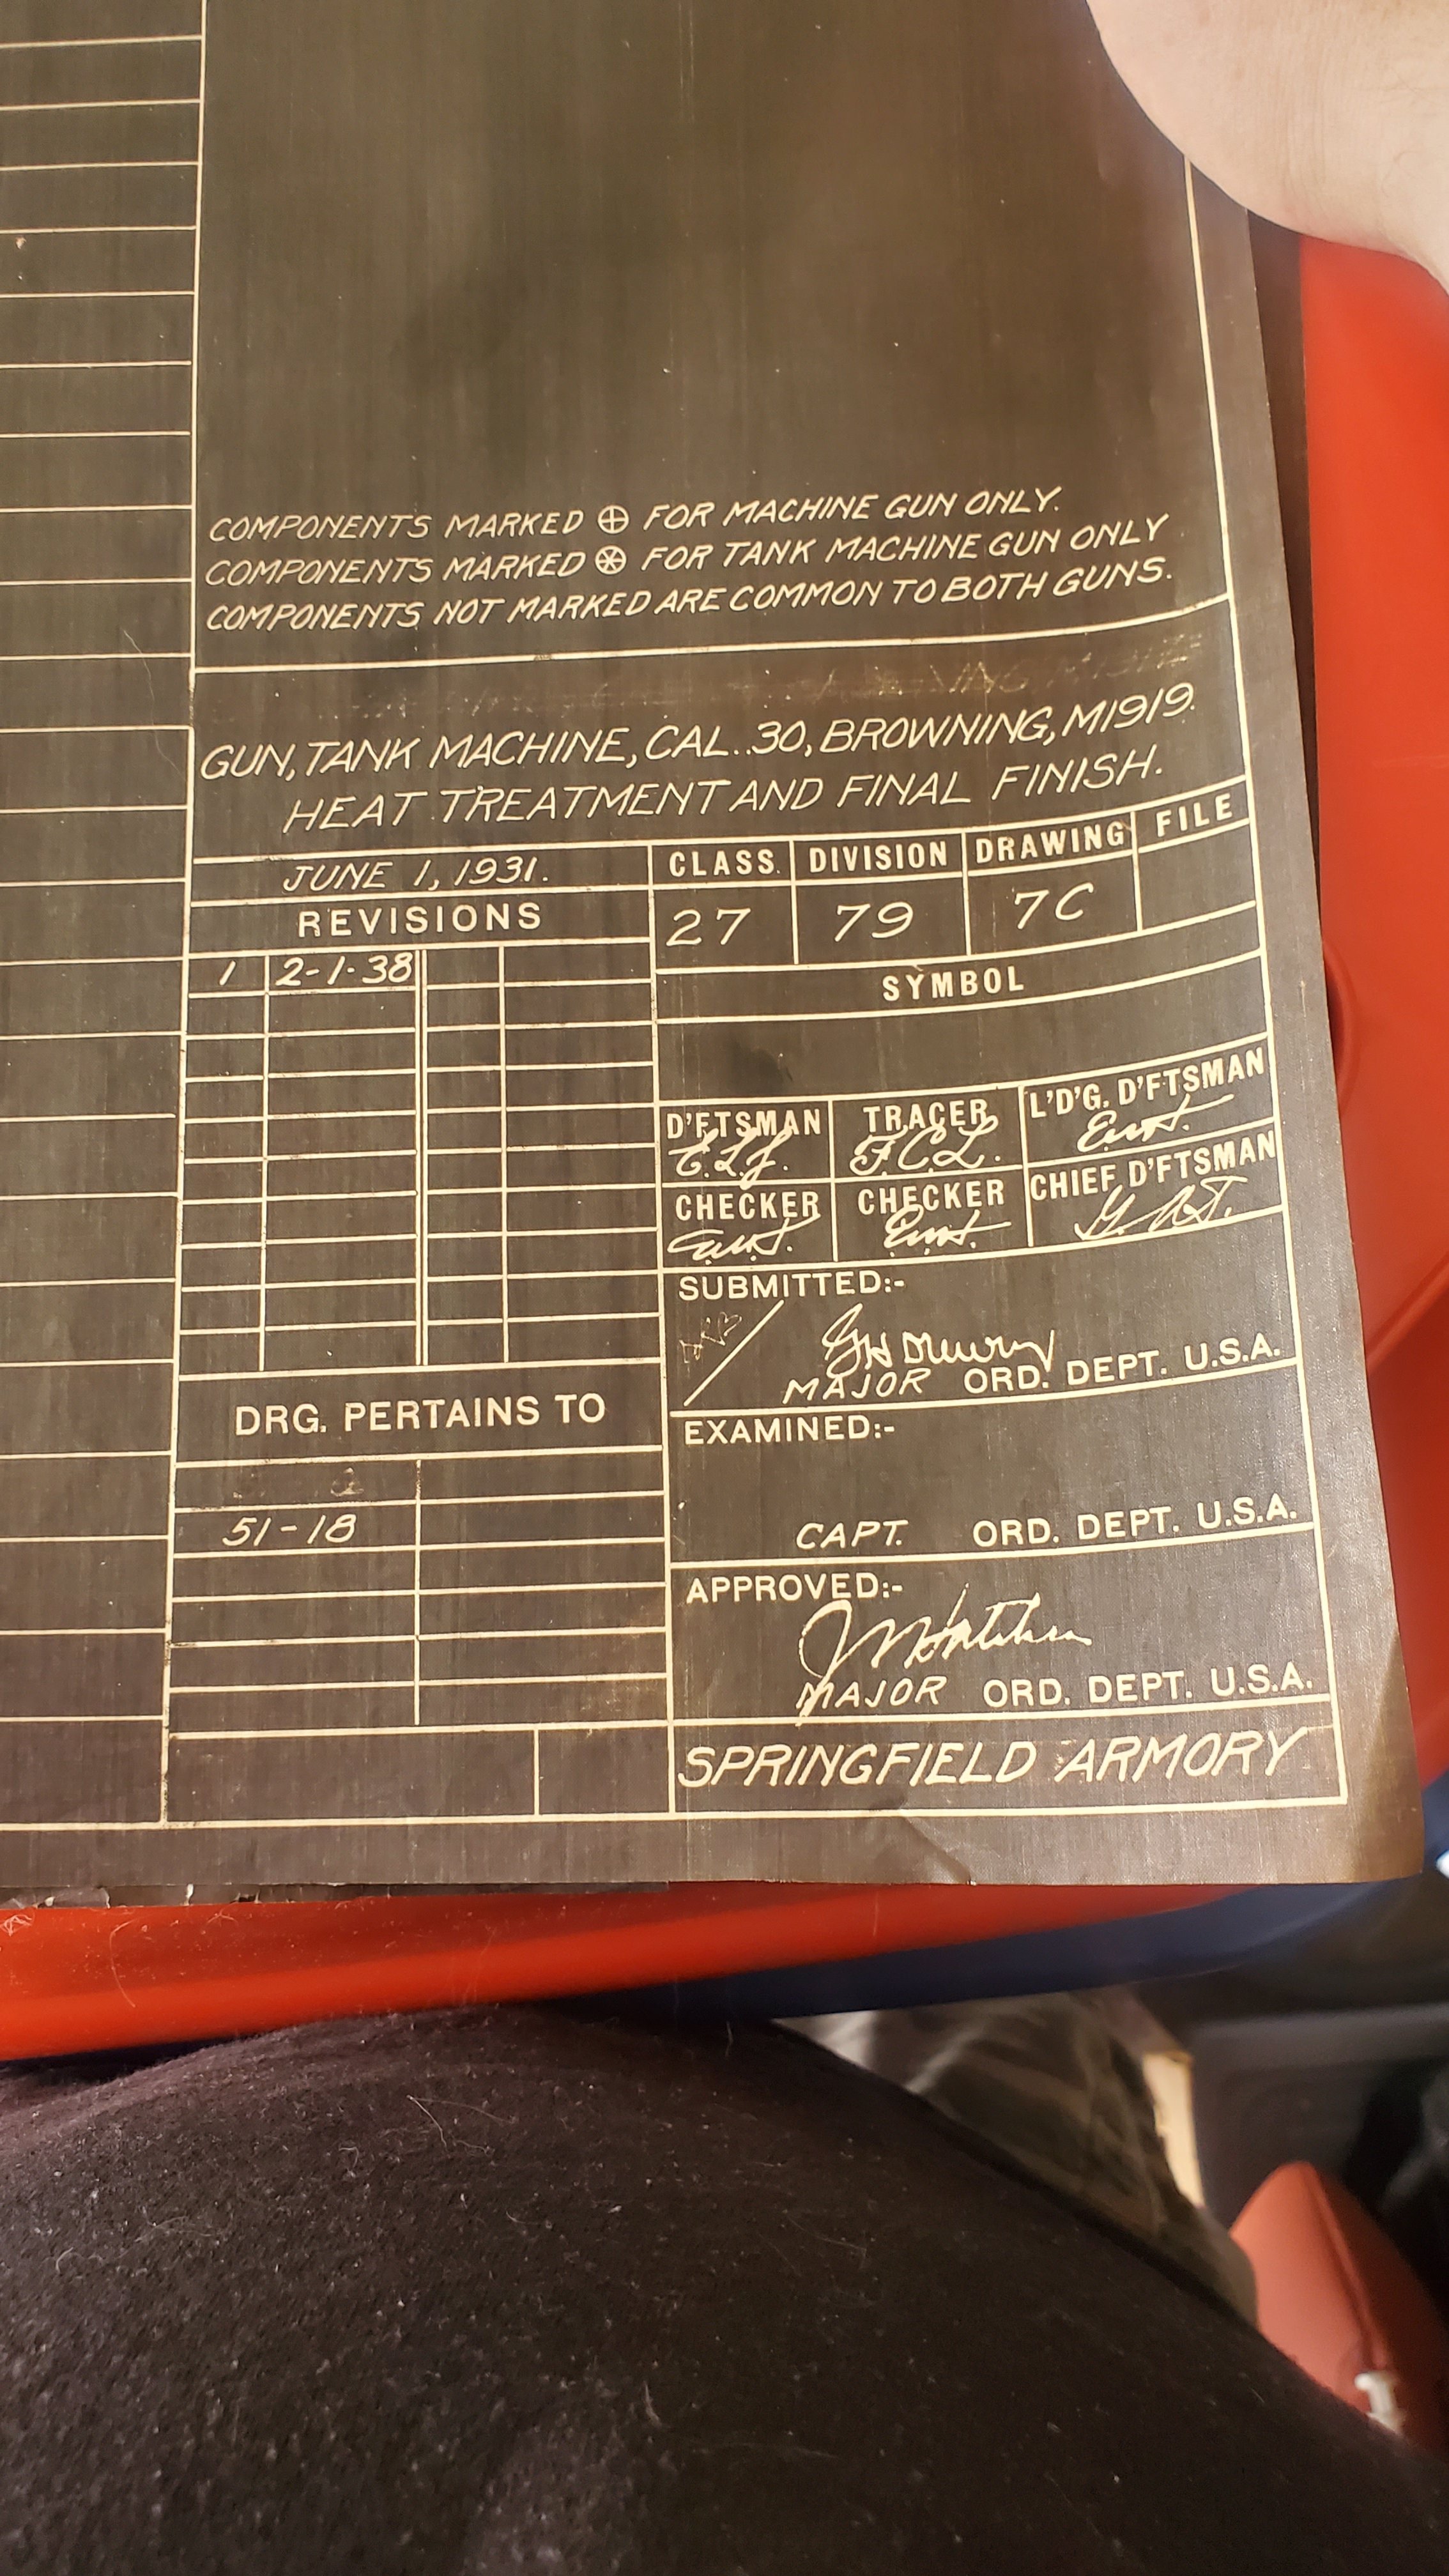 COMPONENTS MARKED ⊕ FOR MACHINE GUN ONLY.
COMPONENTS MARKED ⊛ FOR TANK MACHINE GUN ONLY
COMPONENTS NOT MARKED ARE COMMON TO BOTH GUNS.
GUN, TANK MACHINE, CAL. .30, BROWNING, M1919.
HEAT TREATMENT AND FINAL FINISH.
JUNE 1, 1931.
REVISIONS
1 2-1-38
CLASS. DIVISION DRAWING FILE
27 79 7C
SYMBOL
D'FTSMAN TRACER L'D'G. D'FTSMAN
F.C.L.
CHECKER CHECKER CHIEF D'FTSMAN
SUBMITTED:-
MAJOR ORD. DEPT. U.S.A.
EXAMINED:-
CAPT. ORD. DEPT. U.S.A.
APPROVED:-
MAJOR ORD. DEPT. U.S.A.
DRG. PERTAINS TO
51-18
SPRINGFIELD ARMORY